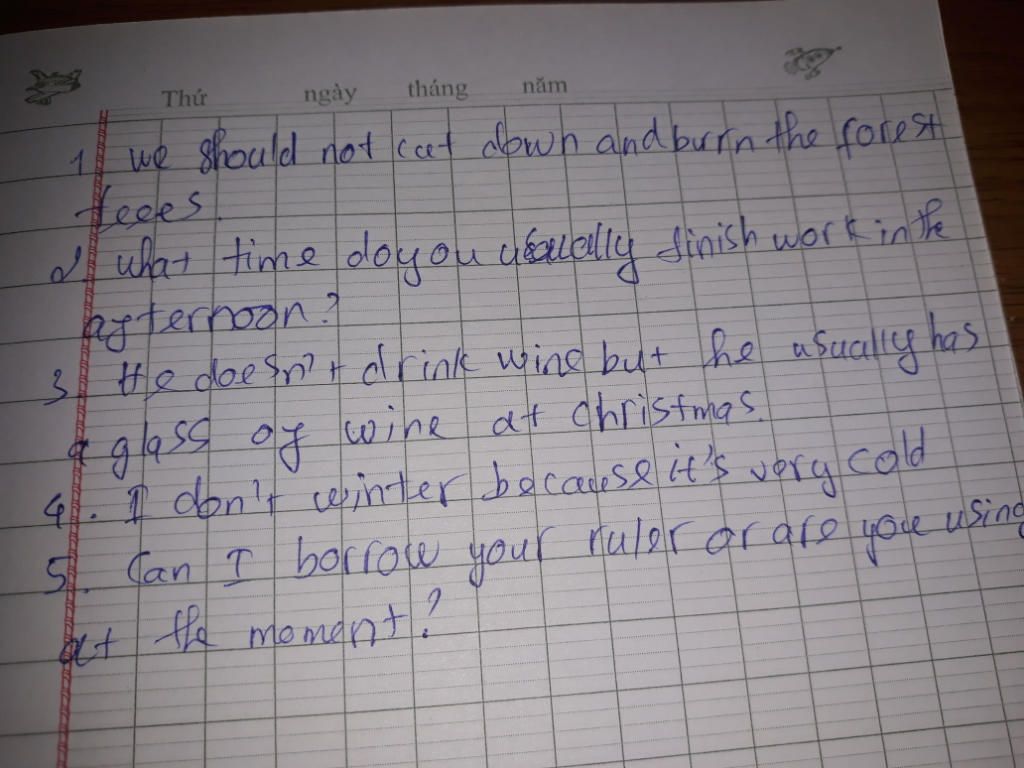 Thứ ngày tháng năm
1 we should not cut down and burn the forest
trees.
2 what time do you usually finish work in the
afternoon?
3 He doesn't drink wine but he usually has
a glass of wine at christmas.
4. I don't winter because it's very cold
5. Can I borrow your ruler or are you using
at the moment?